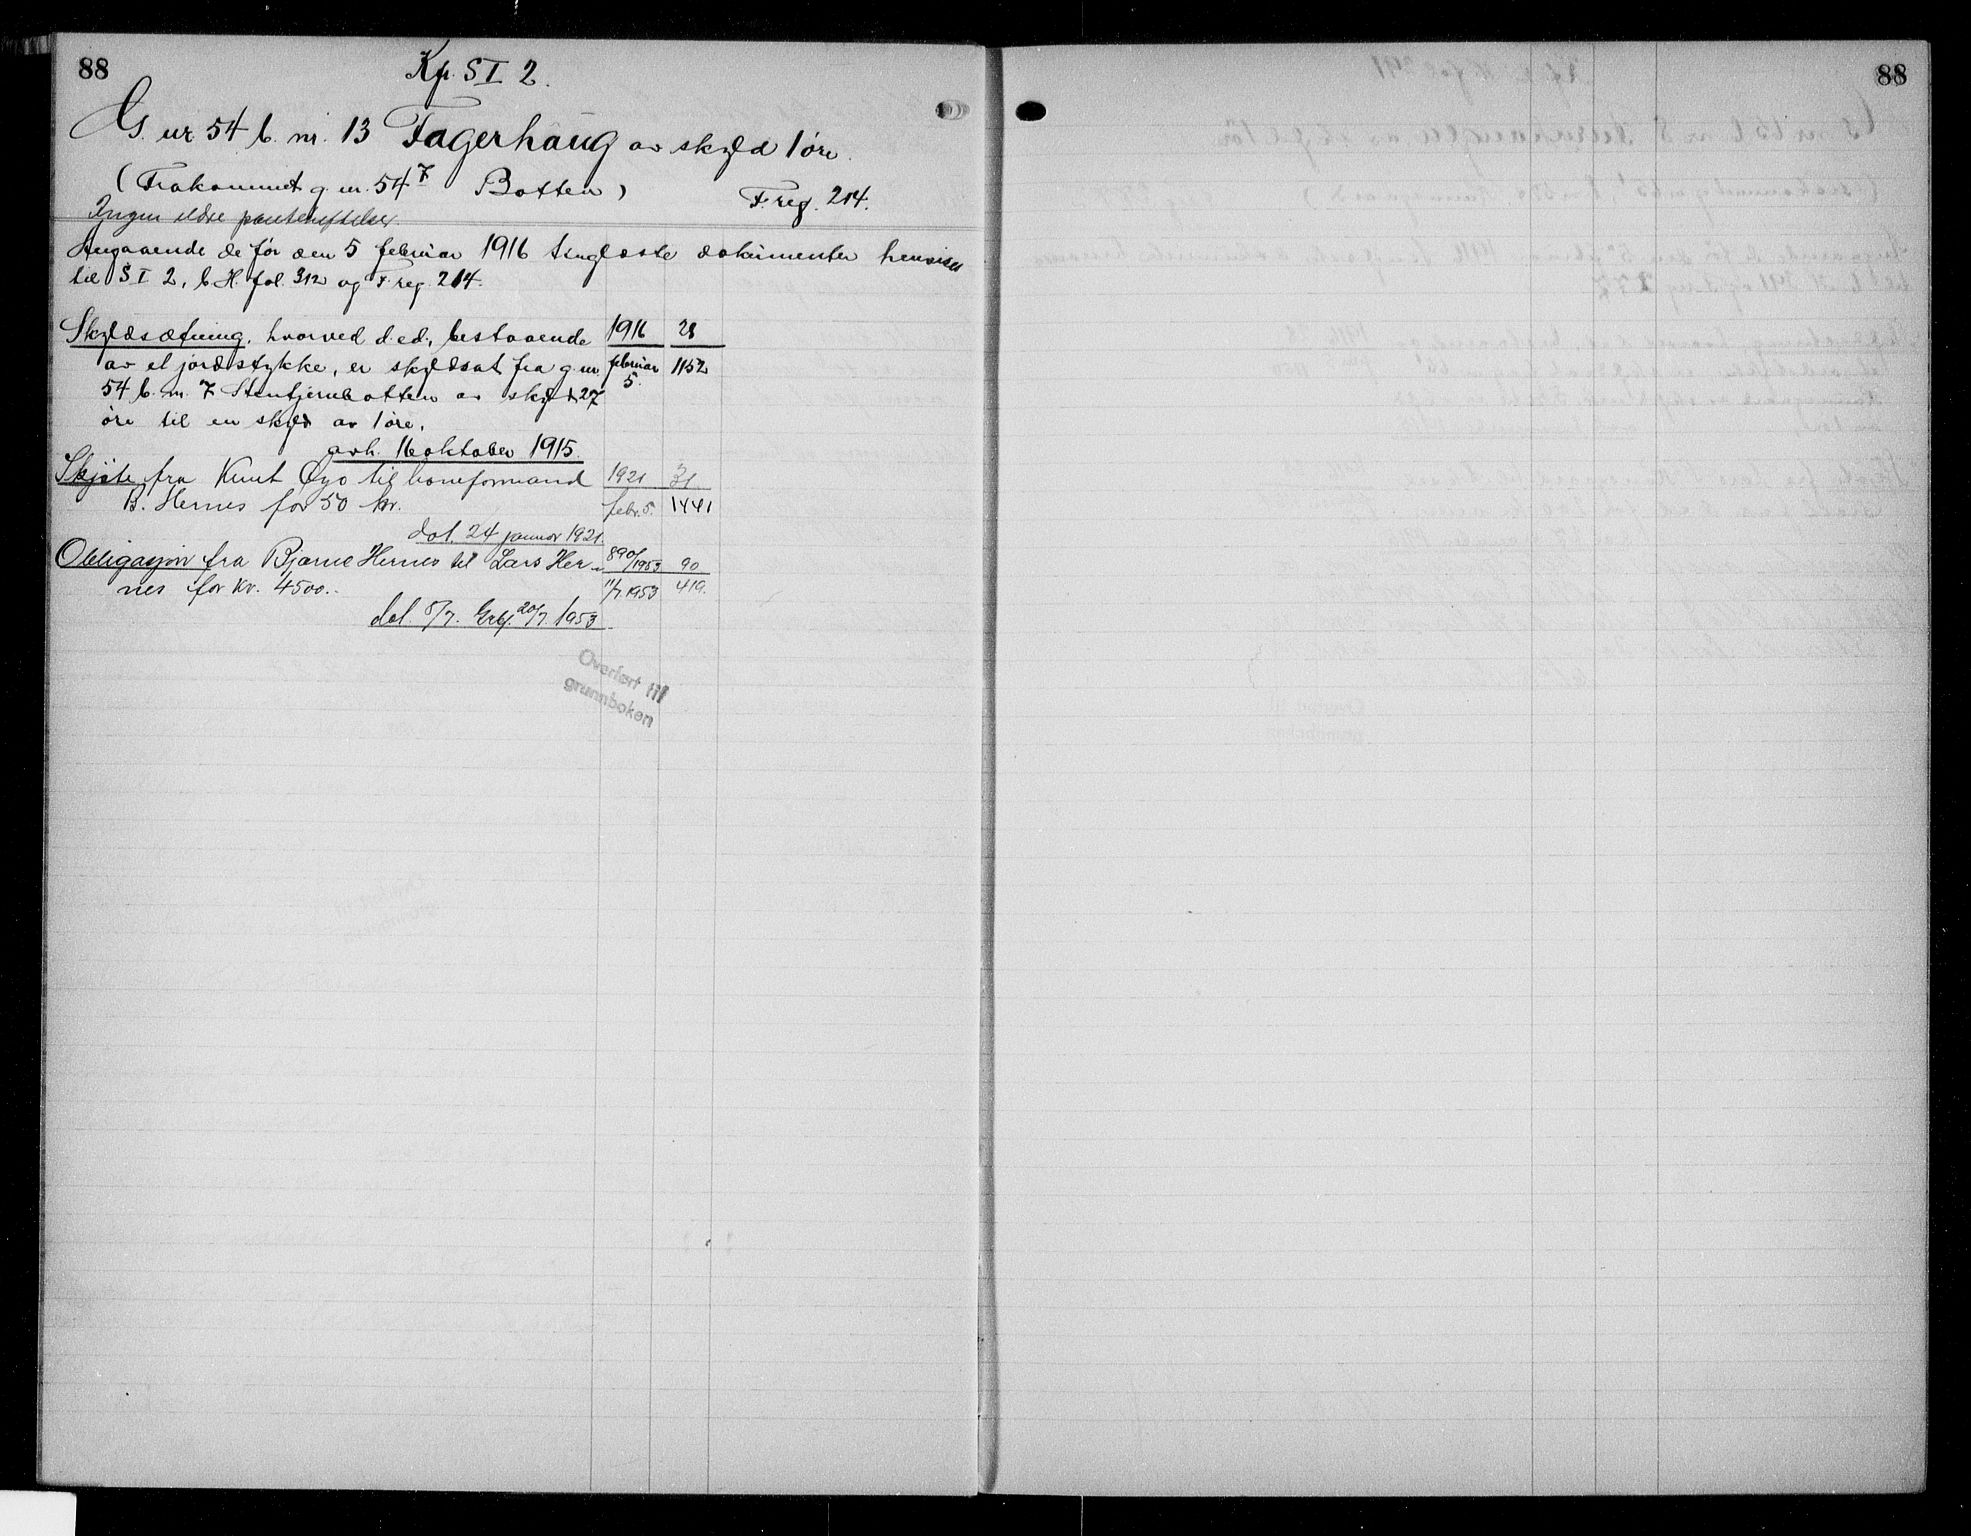 88
Kp. S I 2.
G. nr 54 b. nr. 13 Fagerhaug av skyld 1 øre.
(Frakommet g. nr. 54⁷ Botten)
F. reg. 214.
Ingen eldre panteheftelser
Angaaende de før den 5 februar 1916 tinglæste dokumenter henvises
til S I 2, b H. fol. 312 og F. reg. 214.
Skyldsætning, hvorved d. ed. bestaaende 1916 28
av et jordstykke, er skyldsat fra g. nr. februar 1152
54 b. nr. 7 Stentjernbotten av skyld 27 5.
øre til en skyld av 1 øre.
avh. 16 oktober 1915.
Skjøte fra Knut Øyo til baneformand 1921 31
B. Hernes for 50 kr. febr. 5. 1441
dat. 24 januar 1921.
Obligasjon fra Bjarne Hernes til Lars Her- 890/1953 90
nes for kr. 4500.- 11/7.1953 419.
dat. 5/7. 20/7. 1953
Overført til
grunnboken
88